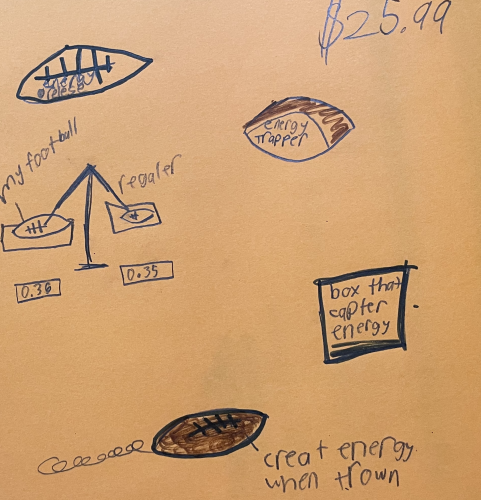 $25.99
energy
relese
energy
Trapper
my football
regaler
0.36
0.35
box that
capter
energy
creat energy
when trown